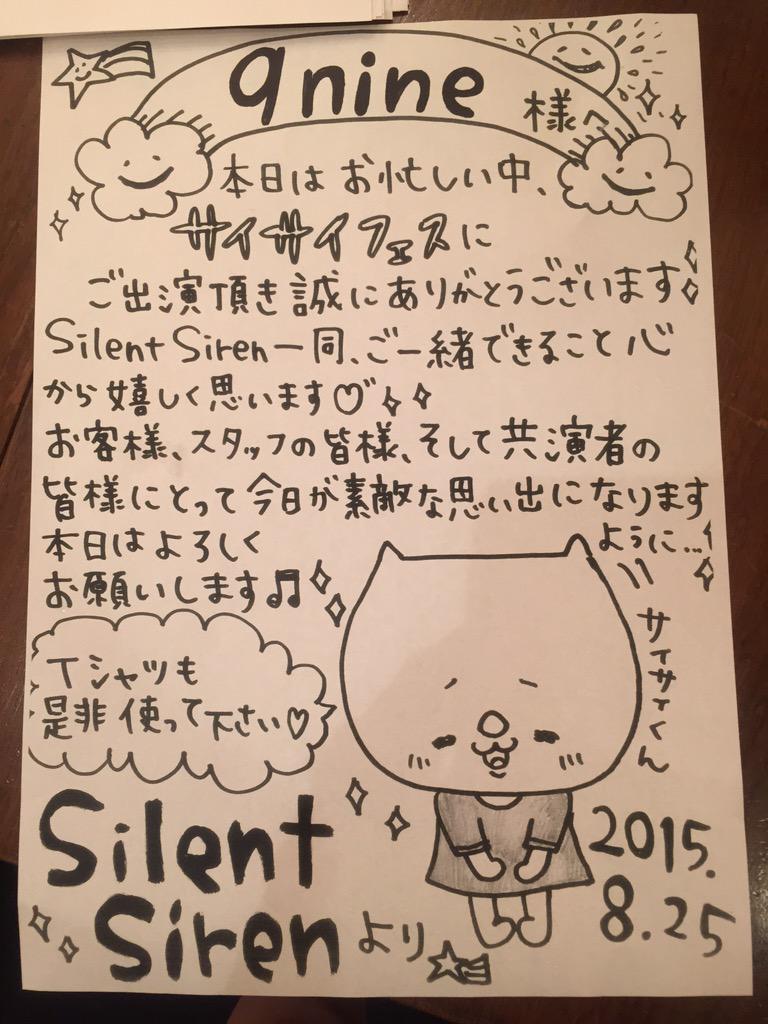 9nine 様へ
本日は お忙しい中、
サイサイフェスに
ご出演頂き誠にありがとうございます
Silent Siren一同、ご一緒できること心
から嬉しく思います♡
お客様、スタッフの皆様、そして共演者の
皆様にとって今日が素敵な思い出になります
ように…
本日はよろしく
お願いします♫
サイサイくん
Tシャツも
是非使って下さい♡
Silent
Sirenより
2015.
8.25